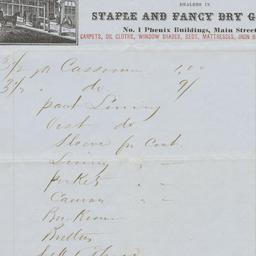 DEALERS IN
STAPLE AND FANCY DRY G
No. 1 Phenix Buildings, Main Street
CARPETS, OIL CLOTHS, WINDOW SHADES, BEDS, MATTRESSES, IRON B
do 9/
pant Lining
Vest do
Sleeve for Coat
Lining "
pockets "
Canvas "
Buttons